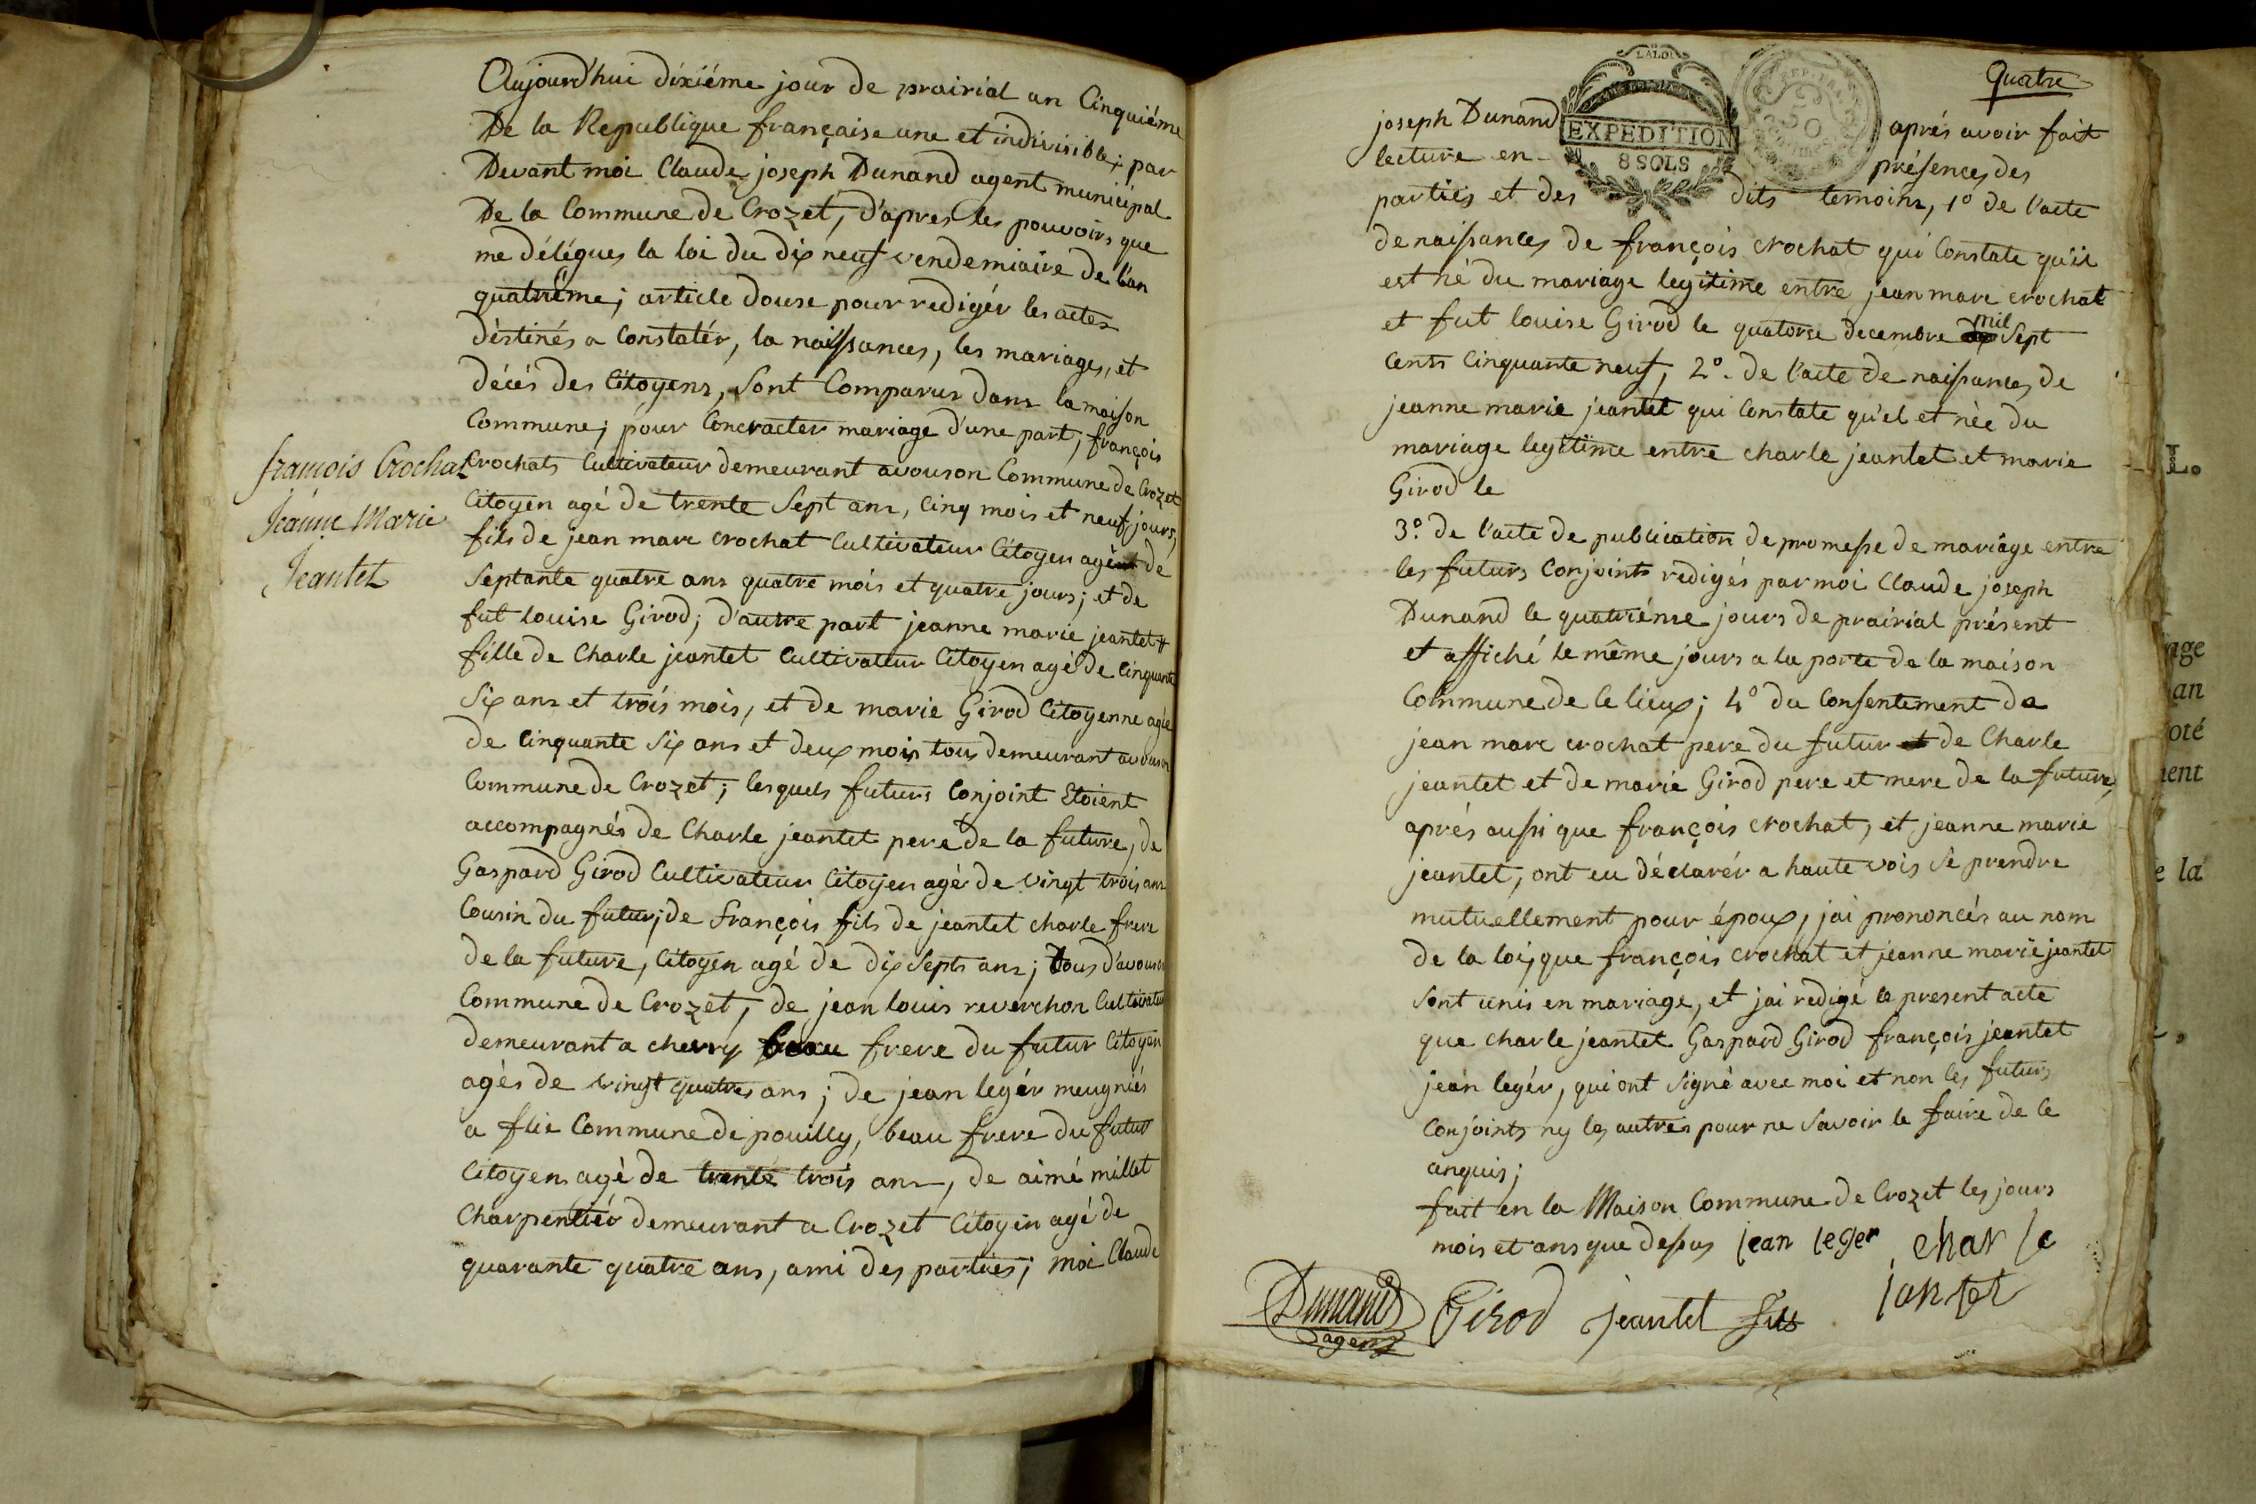 Aujourd'hui dixiéme jour de prairial an Cinquiéme
De la Republique française une et indivisible; par
Devant moi Claude joseph Dunand agent municipal
De la Commune de Crozet, d'apres les pouvoirs que
me délégues la loi du dix neuf vendemiaire de l'an
quatriême; article douse pour redigér les actes
déstinés a Constatér, la naissances, les mariages, et
décés des Citoyens, sont Comparus dans la maison
Commune; pour Contracter mariage d'une part, françois
Crochats Cultivateur demeurant avouson Commune de Crozet
Citoyen agé de trente Sept ans, Cinq mois et neuf jours,
fils de jean marc crochat Cultivateur Citoyen agé de
Septante quatre ans quatre mois et quatre jours; et de
fut Louise Girod; d'autre part jeanne marie jeantet
fille de Charle jeantet Cultivateur Citoyen agé de Cinquante
Six ans et trois mois, et de marie Girod Citoyenne agée
de Cinquante Six ans et deux mois tous demeurant avouson
Commune de Crozet; lesquels futurs Conjoint Etoient
accompagnés de Charle jeantet pere de la future, de
Gaspard Girod Cultivateur Citoyen agé de vingt trois ans
Cousin du futur; de françois fils de jeantet charle frere
de la future, Citoyen agé de dix Septs ans; tous d'avouson
Commune de Crozet, de jean louis reverchon Cultivateur
demeurant a chevry beau frere du futur Citoyen
agés de vingt quatres ans; de jean legér meugniés
a flie Commune de pouilly, beau frere du futur
Citoyen agé de trente trois ans, de aimé millet
Charpentiér demeurant a Crozet Citoyen agé de
quarante quatre ans, ami des parties; moi Claude
françois Crochat
Jeanne Marie
Jeantet
Quatre
LA LOI
EXPEDITION
8 SOLS
REP. FRA.
50
joseph Dunand aprés avoir fait
lecture en présences des
parties et des dits temoins, 1º de l'acte
de naissances de françois crochat qui Constate qu'il
est né du mariage legitime entre jean marc crochat
et fut louise Girod le quatorse decembre mil Sept
Cents Cinquante neuf, 2º. de l'acte de naissances de
jeanne marie jeantet qui Constate qu'el et née du
mariage legitime entre charle jeantet et marie
Girod le
3º. de l'acte de publication de promesse de mariage entre
les futurs Conjoints redigés par moi Claude joseph
Dunand le quatriéme jours de prairial présent
et affiché le même jours a la porte de la maison
Commune de Ce lieux; 4º du Consentement de
jean marc crochat pere du futur de Charle
jeantet et de marie Girod pere et mere de la future,
aprés aussi que françois crochat, et jeanne marie
jeantet, ont eu déclarér a haute vois se prendre
mutuellement pour époux, jai prononcés au nom
de la loi, que françois crochat et jeanne marie jeantet
sont unis en mariage, et jai redigé le present acte
que charle jeantet Gaspard Girod françois jeantet
jean legér, qui ont signé avec moi et non les futurs
Conjoints ny les autres pour ne Savoir le faire de Ce
anquis;
fait en la Maison Commune de Crozet les jours
mois et ans que dessus jean leger charle
jantet
Dunand agent Girod jeantet fils
L.
age
an
oté
ent
e la